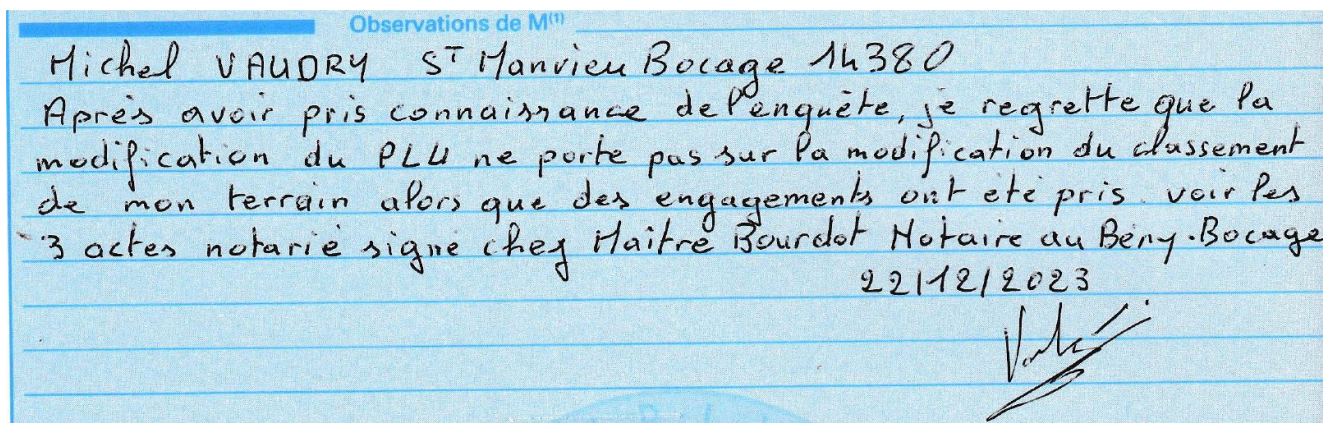 Observations de M(1)
Michel VAUDRY ST Manvieu Bocage 14380
Après avoir pris connaissance de l'enquète, je regrette que la
modification du PLU ne porte pas sur la modification du classement
de mon terrain alors que des engagements ont été pris voir les
3 actes notarié signé chez Maître Bourdot Notaire au Bény-Bocage
22/12/2023